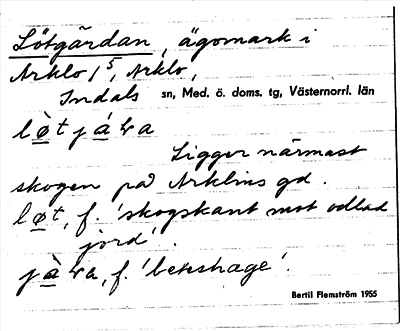 Lötgärdan, ägomark i
Arklo 1⁵, Arklo,
Indals sn, Med. ö. doms. tg, Västernorrl. län
Ligger närmast
skogen på Arklins gd.
løt, f. 'skogskant mot odlad
jord'.
f. 'beteshage'.
Bertil Flemström 1955